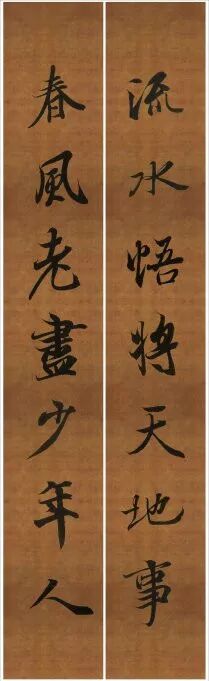 流水悟将天地事
春風老盡少年人